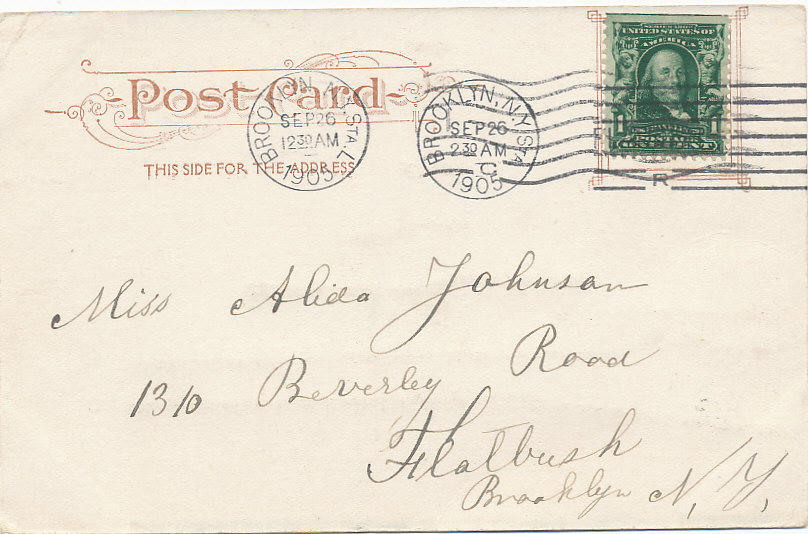 Post Card
THIS SIDE FOR THE ADDRESS
BROOKLYN, N.Y. STA. L.
SEP 26
12 30 AM
1905
BROOKLYN, N.Y. STA.
SEP 26
2 30 AM
1905
R
UNITED STATES OF
AMERICA
1 1
POSTAGE
ONE CENT
Miss Alida Johnson
1310 Beverley Road
Flatbush
Brooklyn N.Y.